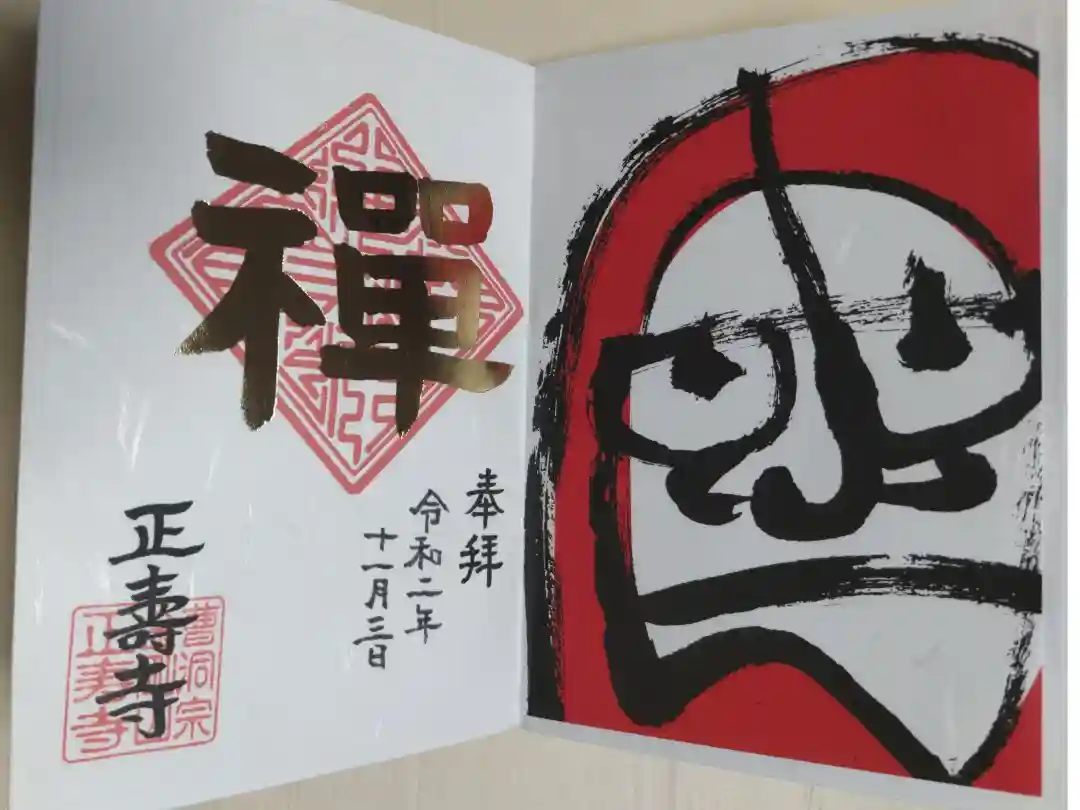 禅
奉拝
令和二年
十一月三日
正壽寺
曹洞宗
正寿寺